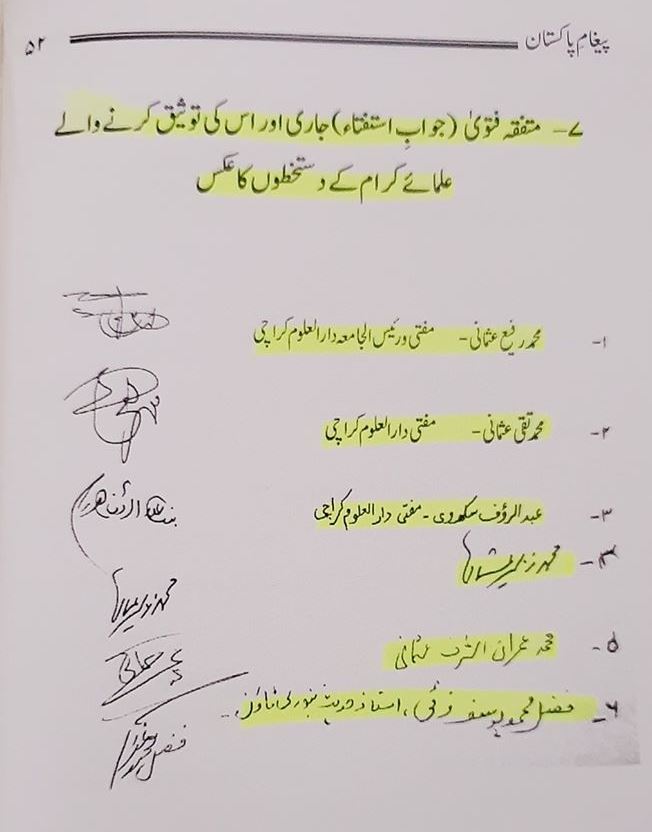 پیغامِ پاکستان ۵۲
۷- متفقہ فتویٰ (جوابِ استفتاء) جاری اور اس کی توثیق کرنے والے
علمائے کرام کے دستخطوں کا عکس
۱- محمد رفیع عثمانی- مفتی و رئیس الجامعہ دارالعلوم کراچی
۲- محمد تقی عثمانی- مفتی دارالعلوم کراچی
۳- عبدالرؤف سکھروی - مفتی دارالعلوم کراچی
۴- محمد زبیر
۵- محمد عمران اشرف عثمانی
۶- فضل محمد یوسف زئی، استاذ حدیث